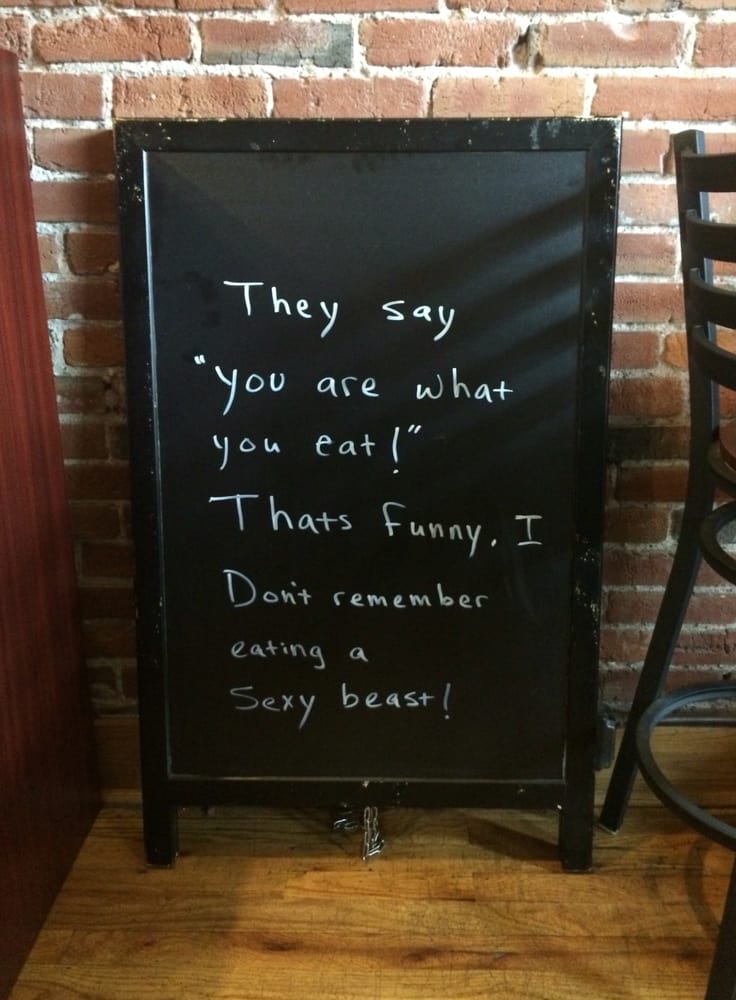 They say
"you are what
you eat!"
Thats funny. I
Don't remember
eating a
Sexy beast!